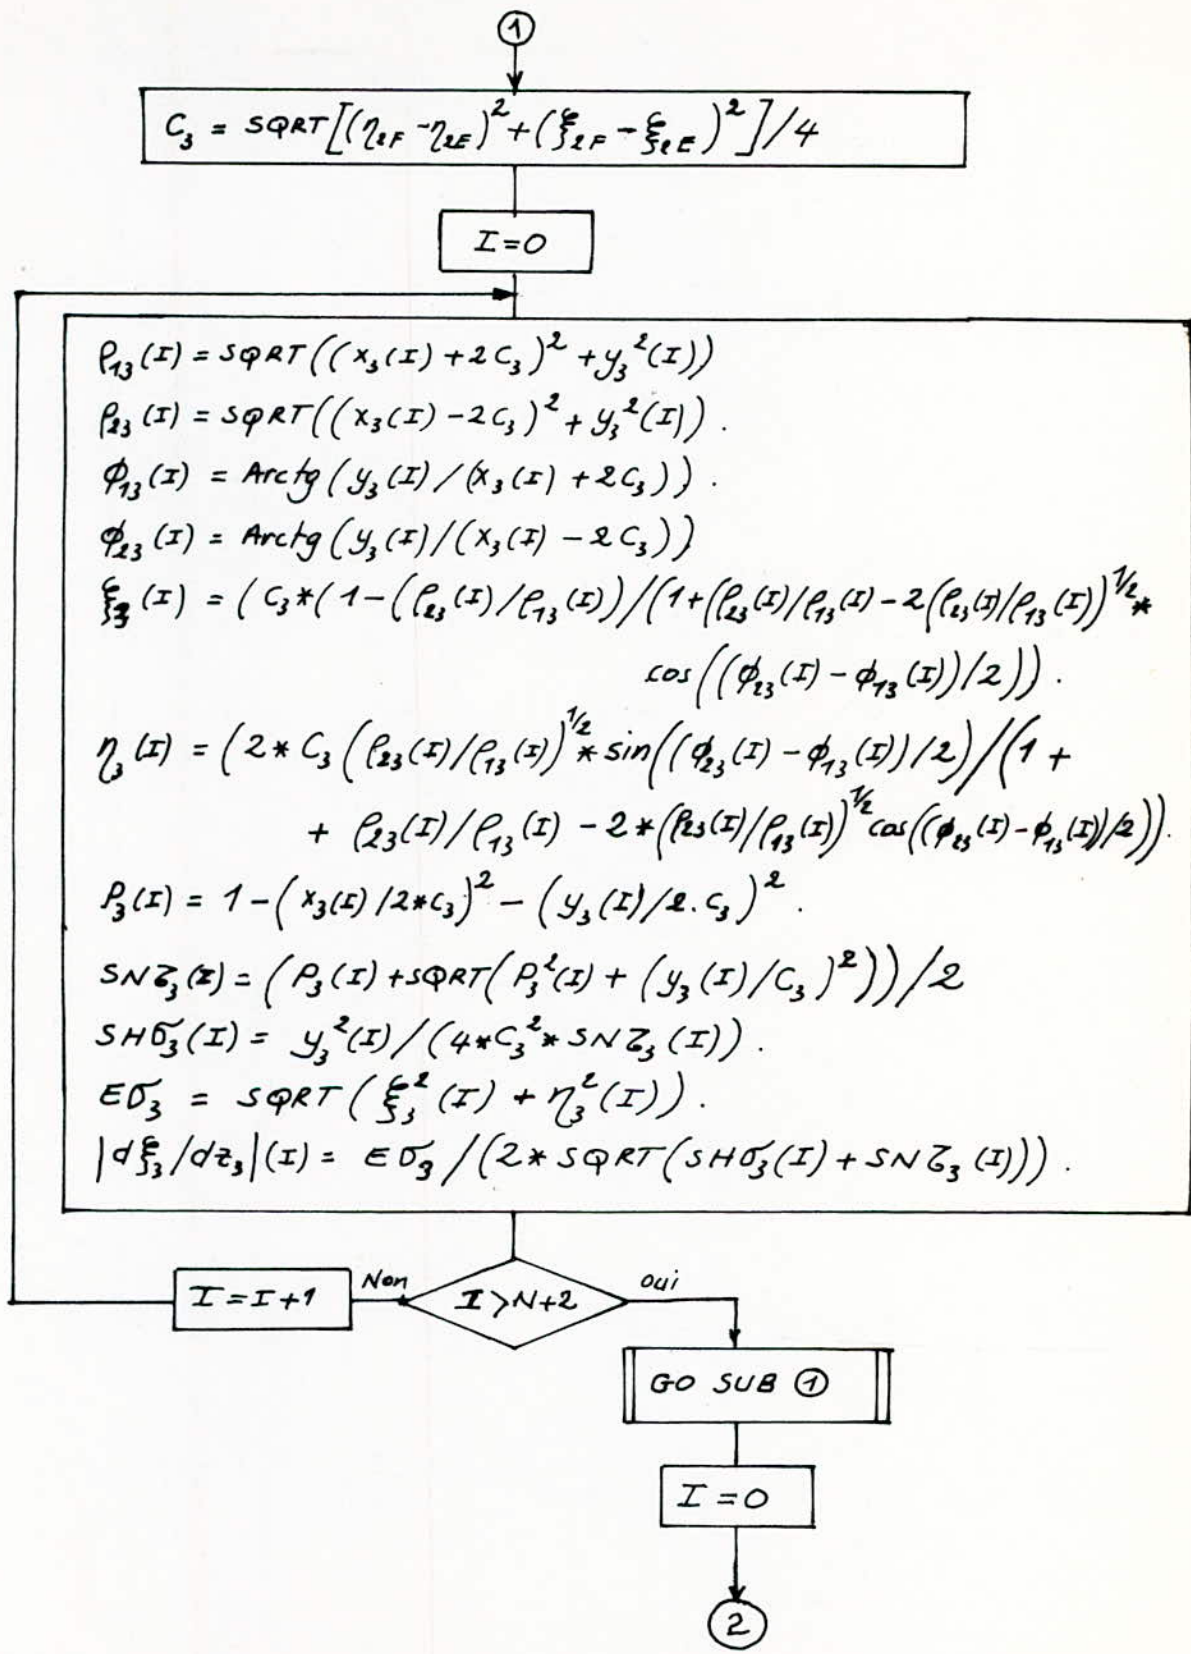 1
C₃ = SQRT[(η₂F - η₂E)² + (ξ₂F - ξ₂E)²]/4
I=0
ρ₁₃(I) = SQRT((x₃(I) + 2C₃)² + y₃²(I))
ρ₂₃(I) = SQRT((x₃(I) - 2C₃)² + y₃²(I)).
ϕ₁₃(I) = Arctg(y₃(I)/(x₃(I) + 2C₃)).
ϕ₂₃(I) = Arctg(y₃(I)/(x₃(I) - 2C₃))
ξ₃(I) = (C₃*(1-(ρ₂₃(I)/ρ₁₃(I))/(1+(ρ₂₃(I)/ρ₁₃(I) - 2(ρ₂₃(I)/ρ₁₃(I))^1/2 *
cos((ϕ₂₃(I) - ϕ₁₃(I))/2)).
η₃(I) = (2*C₃(ρ₂₃(I)/ρ₁₃(I))^1/2 * sin((ϕ₂₃(I) - ϕ₁₃(I))/2)/(1 +
+ ρ₂₃(I)/ρ₁₃(I) - 2*(ρ₂₃(I)/ρ₁₃(I))^1/2 cos((ϕ₂₃(I) - ϕ₁₃(I))/2)).
P₃(I) = 1 - (x₃(I)/2*C₃)² - (y₃(I)/2.C₃)².
SNζ₃(I) = (P₃(I) + SQRT(P₃²(I) + (y₃(I)/C₃)²))/2
SHσ₃(I) = y₃²(I)/(4*C₃²*SNζ₃(I)).
Eσ₃ = SQRT(ξ₃²(I) + η₃²(I)).
|dξ₃/dz₃|(I) = Eσ₃/(2*SQRT(SHσ₃(I) + SNζ₃(I))).
I=I+1
Non
I>N+2
oui
GO SUB ①
I=0
2